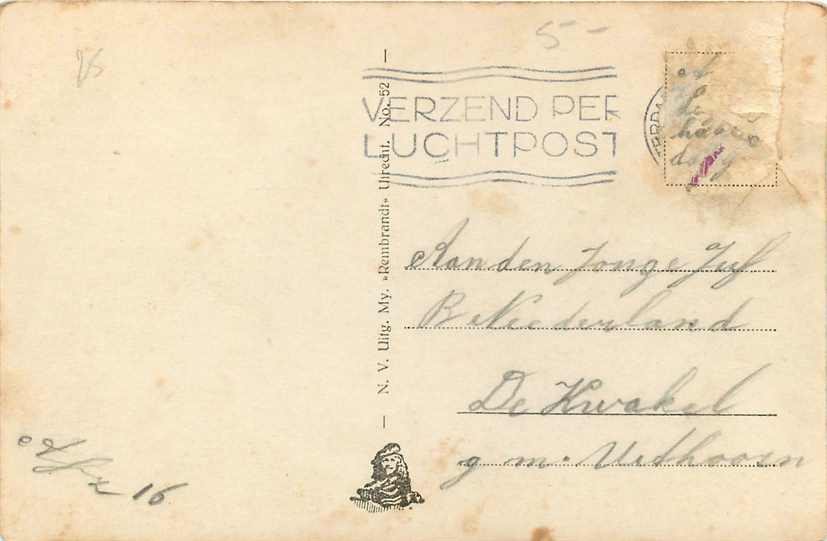 5-
VERZEND PER
LUCHTPOST
N. V. Uitg. My. »Rembrandt« Utrecht. No. 52
Aan den Jonge Juf
B Nederland
De Kwakel
g. m. Uithoorn
16